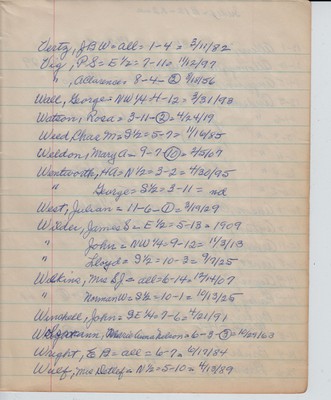 Vertz, J.B.W = all = 1-4 = 5/11/82
Vig, P.S = E 1/2 = 7-11 = 11/2/97
" , Aclarence = 8-4-② 9/18/56
Wall, George = NW 1/4 H-12 = 3/31/93
Watton, Rosa = 3-11-② = 4/24/19
Weed Chas M = S 1/2 = 5-7 = 1/16/85
Weldon, Mary A = 9-7-⑩ = 2/5/67
Wentworth, HA = N 1/2 = 3-2 = 4/30/95
" George = S 1/2 = 3-11 = nd
West, Julian = 11-6-① = 3/19/29
Wilder, James S = E 1/2 = 5-13 = 1909
" John = NW 1/4 = 9-12 = 11/3/13
" Lloyd = S 1/2 = 10-3 = 9/9/25
Wilkins, Mrs = all = 6-14 = 12/14/07
" Norman W = S 1/2 = 10-1 = 10/13/25
Winchell, John = SE 1/4 = 7-6 = 4/21/91
= 6-3-③ = 10/29/63
Wright, E B = all = 6-7 = 6/17/84
Wulf, Mrs Detlef = N 1/2 = 5-10 = 4/13/89